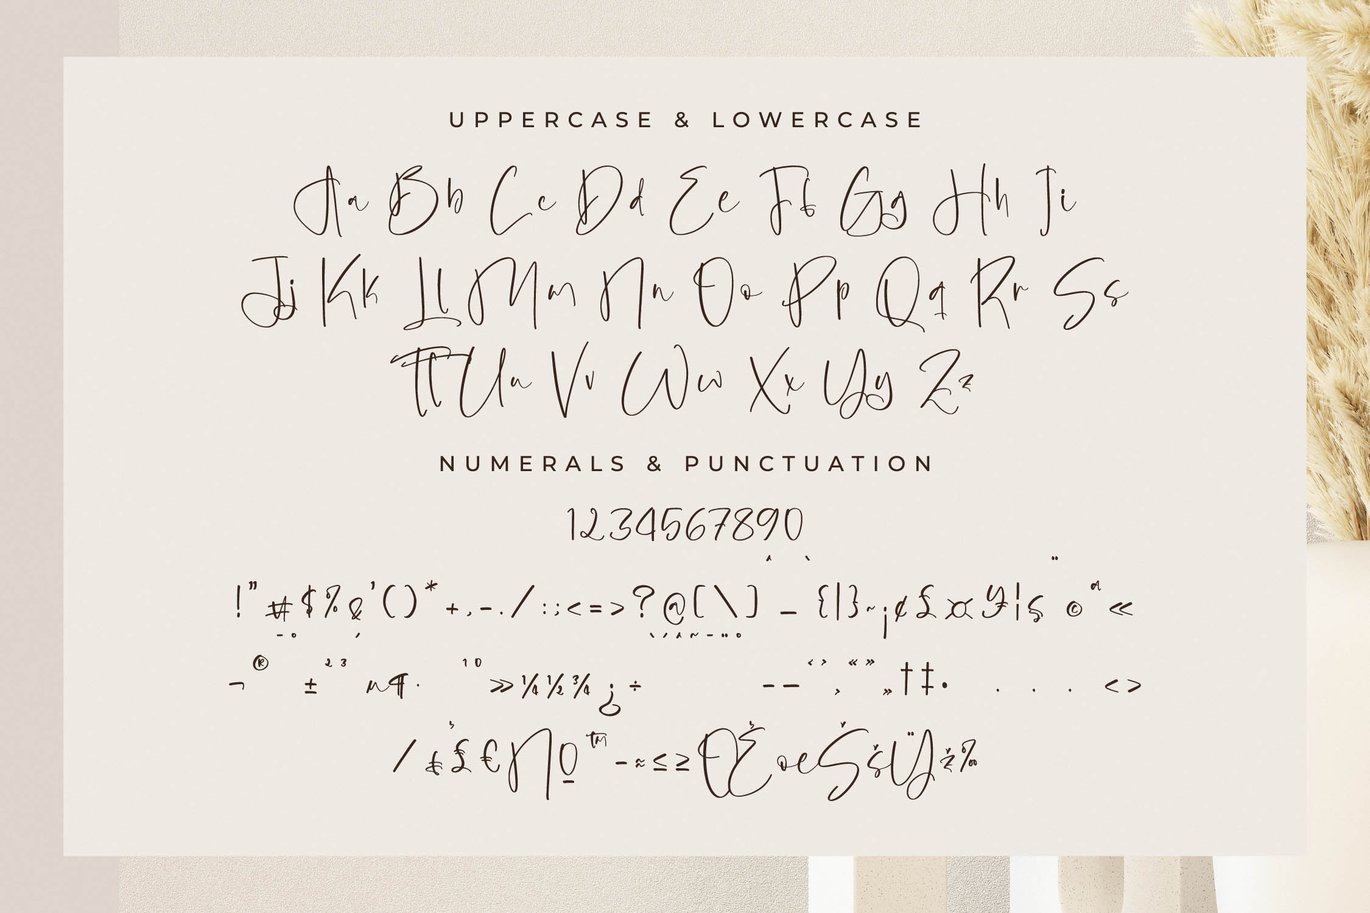 UPPERCASE & LOWERCASE
Aa Bb Cc Dd Ee Ff Gg Hh Ii
Jj Kk Ll Mm Nn Oo Pp Qq Rr Ss
Tt Uu Vv Ww Xx Yy Zz
NUMERALS & PUNCTUATION
1234567890
!"#$%&'()*+,-./:;<=>?@[\]^_`{|}~¡¢£¤¥¦§¨©ª«
¬®¯°±²³´µ¶·¹º»¼½¾¿÷ˆˇ˘˜–—‘’‚“”„†‡•‹›
⁄₤€№™−≈≤≥ŒœŠšŸž‰